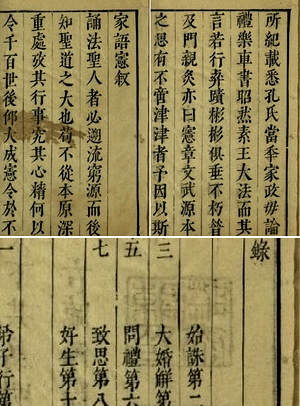 所紀載悉孔氏當年家政毋論
禮樂車書昭然素王大法而其
言若行彝蹟彬彬俱垂不朽昔
及門親炙亦曰憲章文武源本
之思有不啻津津者予因以斯
家語憲叙
誦法聖人者必遡流窮源而後
知聖道之大也苟不從本原深
重處攷其行事究其心精何以
令千百世後仰大成憲令於不
錄
始誅第二
三 大婚解第
五 問禮第六
七 致思第八
好生第十
一 弟子行第